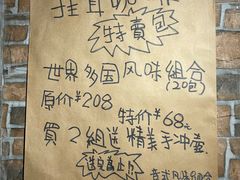 挂耳咖啡
特賣包
世界多国风味组合(20包)
原价¥208
特价¥68元
買2组送精美手冲壶
送完為止